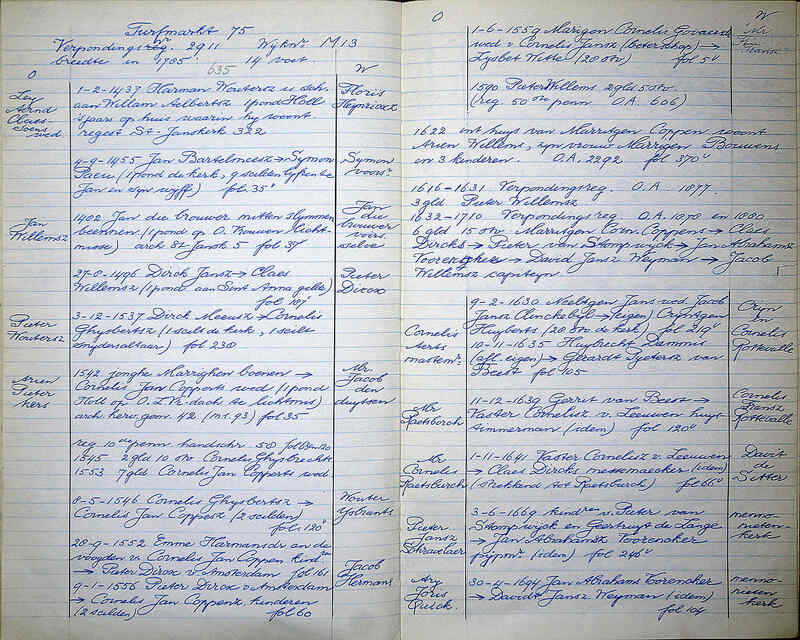 Turfmarkt 75
Verpondingsreg. 2911 Wijknr M13
breedte in 1785. 14 voet.
635
O W
Arnd
Claes
soens
wed
1-2-1437 Harman Woutersz is sch.
aan Willam Aelbertsz 1 pond Holl
'sjaars op huis waarin hij woont.
regest St-Janskerk 322
Floris
Heynricxz
4-9-1455 Jan Bartelmeesz → Symon
Paeu (1 pond de kerk, 9 scellen
Jan en syn wyff) fol. 35
Symon
voors.
Jan
Willemsz
1482 Jan die brouwer mitten
beenen (1 pond op O. Vrouwen licht-
misse) arch St Jansk 5 fol 37
Jan
die
brouwer
voirs
selve
27-8-1496 Dirck Jansz → Claes
Willemsz (1 pond aan Sint Anna gilde)
Pieter
Dircx
Pieter
Woutersz
3-12-1537 Dirck Meeusz → Cornelis
Ghysbertsz (1 scilt de kerk, 1 scilt
snydersaltaer) fol 238
Arien
Pieter
Kers
1542 jonghe Marrighen boenen →
Cornelis Jan Copperts wed (1 pond
Holl op O.L.Vr. dach te lichtmis)
arch. kerv. gem. 42 (inv. 93) fol 35
Mr.
Jacob
den
duytsen
reg 10de penn handschr. 58
1545 2 gld 10 st Cornelis Ghysbrechts
1553 7 gld Cornelis Jan Copperts wed.
8-5-1546 Cornelis Ghysbertsz →
Cornelis Jan Coppesz (2 scilden)
fol. 120
Wouter
Ysbrants
28-9-1552 Emme Hermansdr en de
voogden v. Cornelis Jan Coppen kindn
→ Pieter Dircx v Amsterdam fol 161
9-1-1556 Pieter Dircx v Amsterdam
→ Cornelis Jan Coppenz kinderen
(2 scilden) fol 60
Jacob
Hermans
O W
1-6-1559 Marigen Cornelis Govaertsz
wed v Cornelis Jansz (beterschap) →
Lysbet Witte (20 st) fol 5v
Mr
1590 Pieter Willems 2 gld 5 st.
(reg. 50ste penn O.A. 606)
1622 int huys van Marritgen Coppen woont
Arien Willems, syn vrouw Marrigen Bouwens
en 3 kinderen. O.A. 2292 fol 370v
1616-1631 Verpondingsreg. O.A. 1077.
3 gld Pieter Willemsz
1632-1710 Verpondingsreg. O.A. 1078 en 1080
6 gld 15 st. Marritgen Corn. Coppens → Claes
Dircks → Pieter van Stompwijck → Jan Abrahamsz
→ David Jansz Weyman → Jacob
Willemsz capiteyn
Cornelis
Aerts
mastemr.
9-2-1630 Neeltgen Jans wed. Jacob
Jansz Clinckebyl → (eigen) Cryntgen
Huyberts (20 st de kerk) fol 219v
10-11-1635 Huybrecht Dammis
(afl. eigen) → Gerardt Pietersz van
Beest fol 105
Cryn
en
Cornelis
Rottevalle
Mr
Raetsburch
11-12-1639 Gerrit van Beest →
Vaster Cornelisz v. Leeuwen huys
timmerman (idem) fol 120v
Cornelis
Fransz
Rottevalle
Mr
Cornelis
Raetsburch
1-11-1641 Vaster Cornelisz v. Leeuwen
→ Claes Dircks messemaecker (idem)
(strekkend tot Raetsburch) fol 66v
Davit
de
Sitter
Pieter
Jansz
Schraelaer
3-6-1669 kindren v. Pieter van
Stompwijck en Geertruyt de Lange
→ Jan Abrahamsz Toorenaker
pijpmr. (idem) fol 246v
menno-
nieten-
kerk
Ary
Joris
Quick.
30-4-1694 Jan Abrahams Toorenaker
→ Davidt Jansz Weyman (idem)
fol 104
menno-
nieten
kerk